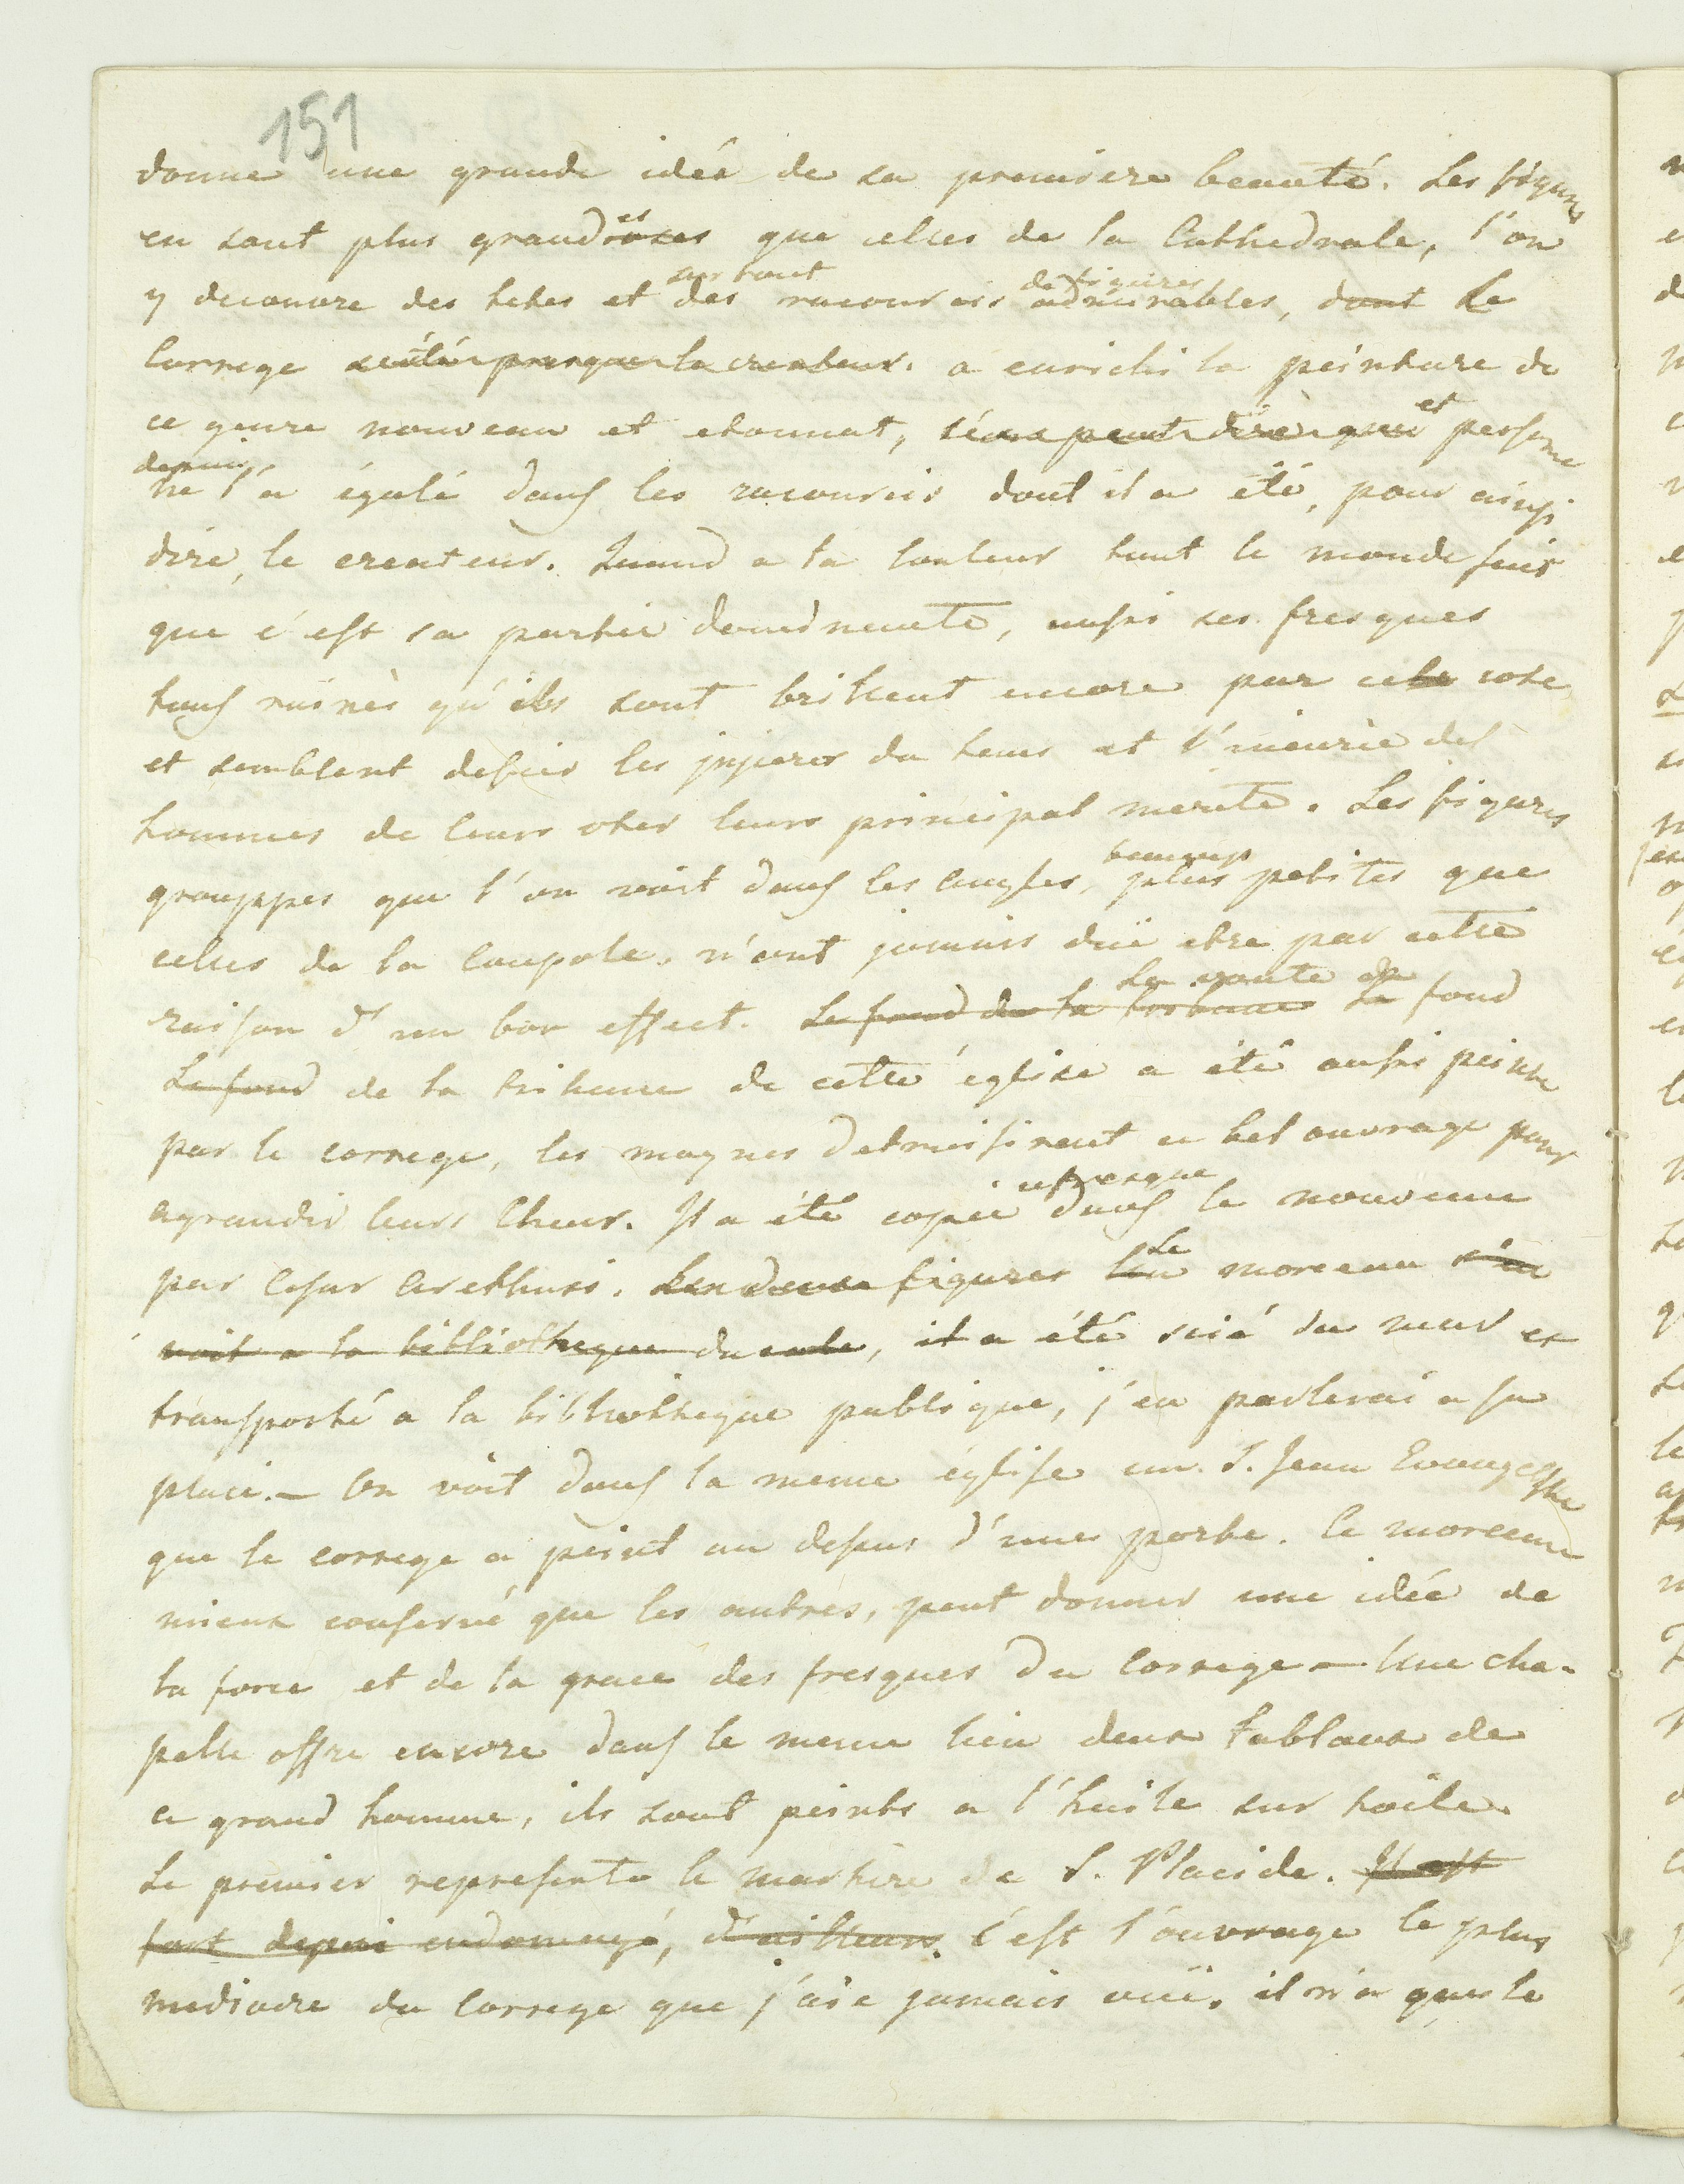 151
donne une grande idée de sa premiere beauté. Les figures
en sont plus grandioses es que celles de la Cathedrale, l'on
surtout de figures
y decouvre des tetes et des racourcis admirables, dont Le
Correge a enrichi la peinture de
ce genre nouveau et etonnat, et persone
depuis
ne l'a égalé dans les racourcis dont il a été, pour ainsi
dire, le createur. Quand a la couleur tout le monde sait
que c'est sa partie dominente, aussi ses fresques
tous ruinés qu'ils sont brillent encore par ce cote
et semblent defier les injures du tems et l'incurie des
hommes de leurs oter leurs principal merite. Les figures
beaucoup
grouppes que l'on voit dans les angles, plus petites que
celles de la Coupole, n'ont jamais düe etre par cette
La voute du
raison d'un bon effect. Le fond de la tribune Le fond
Le fond de la tribune de cette église a été aussi peinte
par le correge, les moynes detruisirent ce bel ouvrage pour
en fresque
agrandir leurs Cheur. Il a été copié dans le nouveau
Le
par Cesar Arethusi. Les deux figures morceau s'en
voit a la bibliotheque ducale, il a été scié du mur et
transporté a la bibliotheque publique, j'en parlerai a sa
place. — On voit dans la meme église un S. Jean Evangeliste
que le correge a peint au dessus d'une porte. Ce morceau
mieux conservé que les autres, peut donner une idée de
la force et de la grace des fresques du Correge — Une cha-
pelle offre encore dans le meme lieu deux tablaux de
ce grand homme, ils sont peints a l'huile sur toile.
Le premier represente le martire de S. Placide. Il est
fort depuis endomagé, d'ailleurs. C'est l'ouvrage le plus
mediocre du Correge que j'aie jamais vüe. il n'a que le